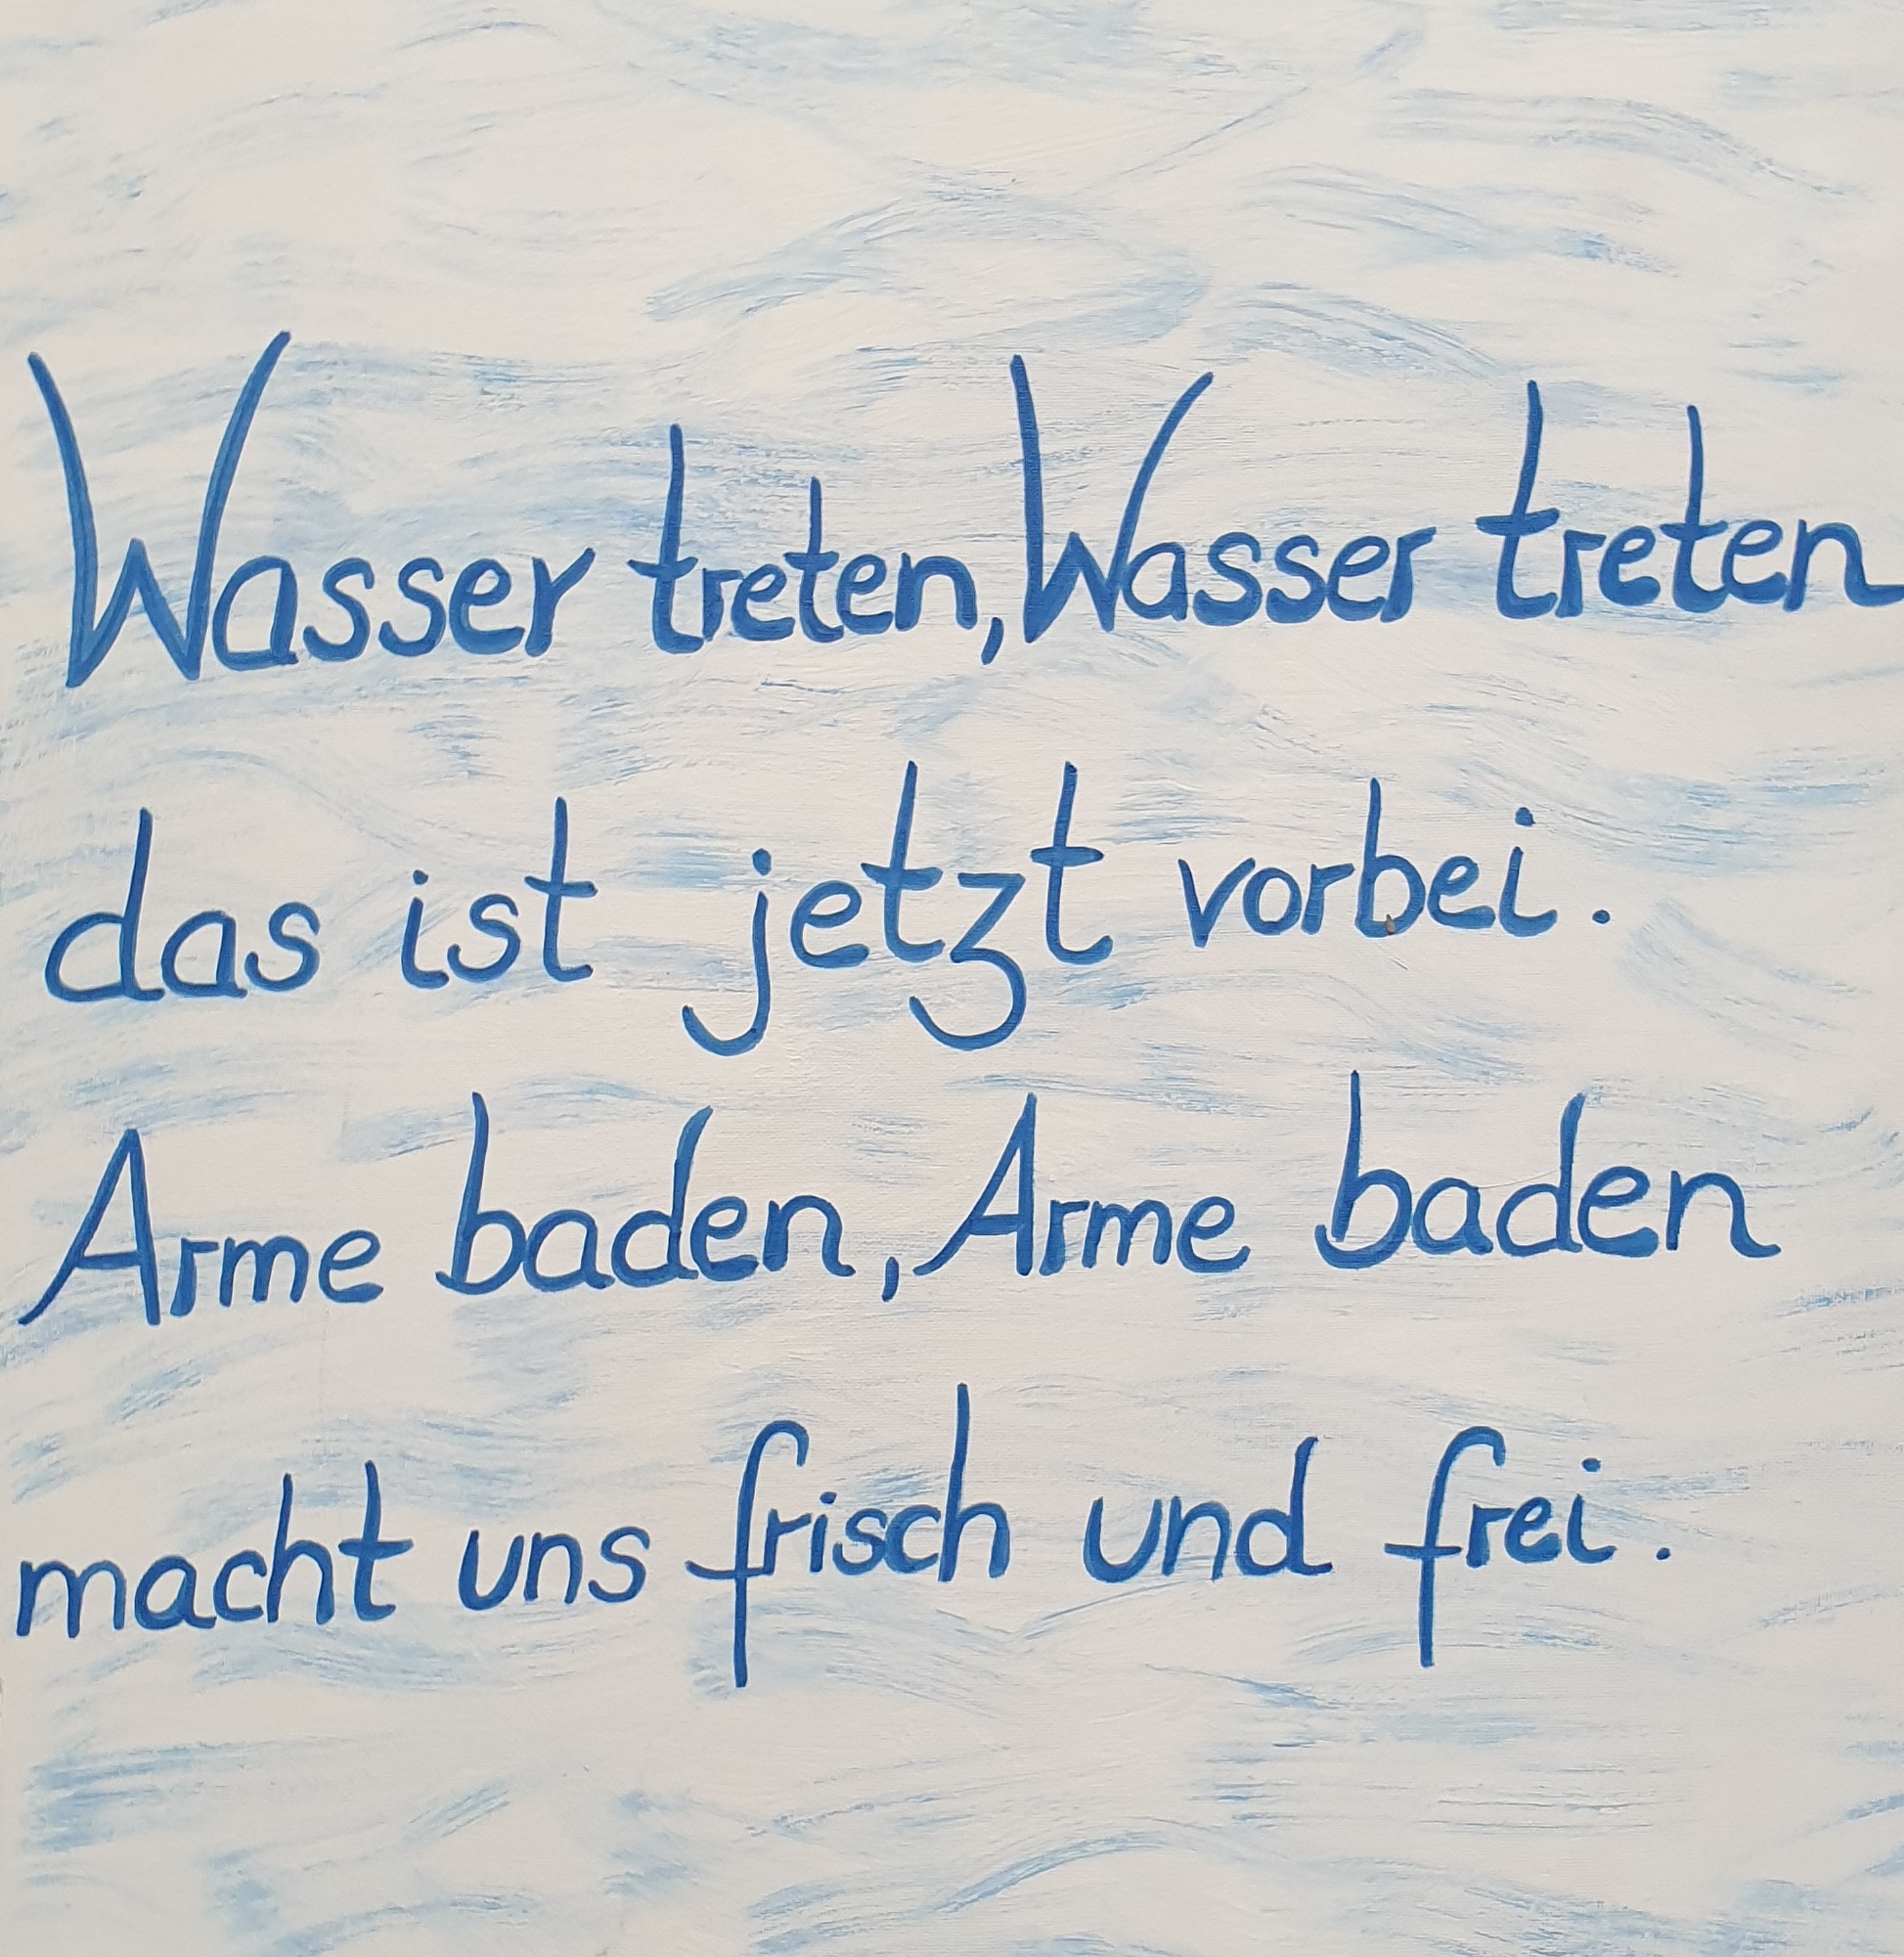 Wasser treten, Wasser treten
das ist jetzt vorbei.
Arme baden, Arme baden
macht uns frisch und frei.